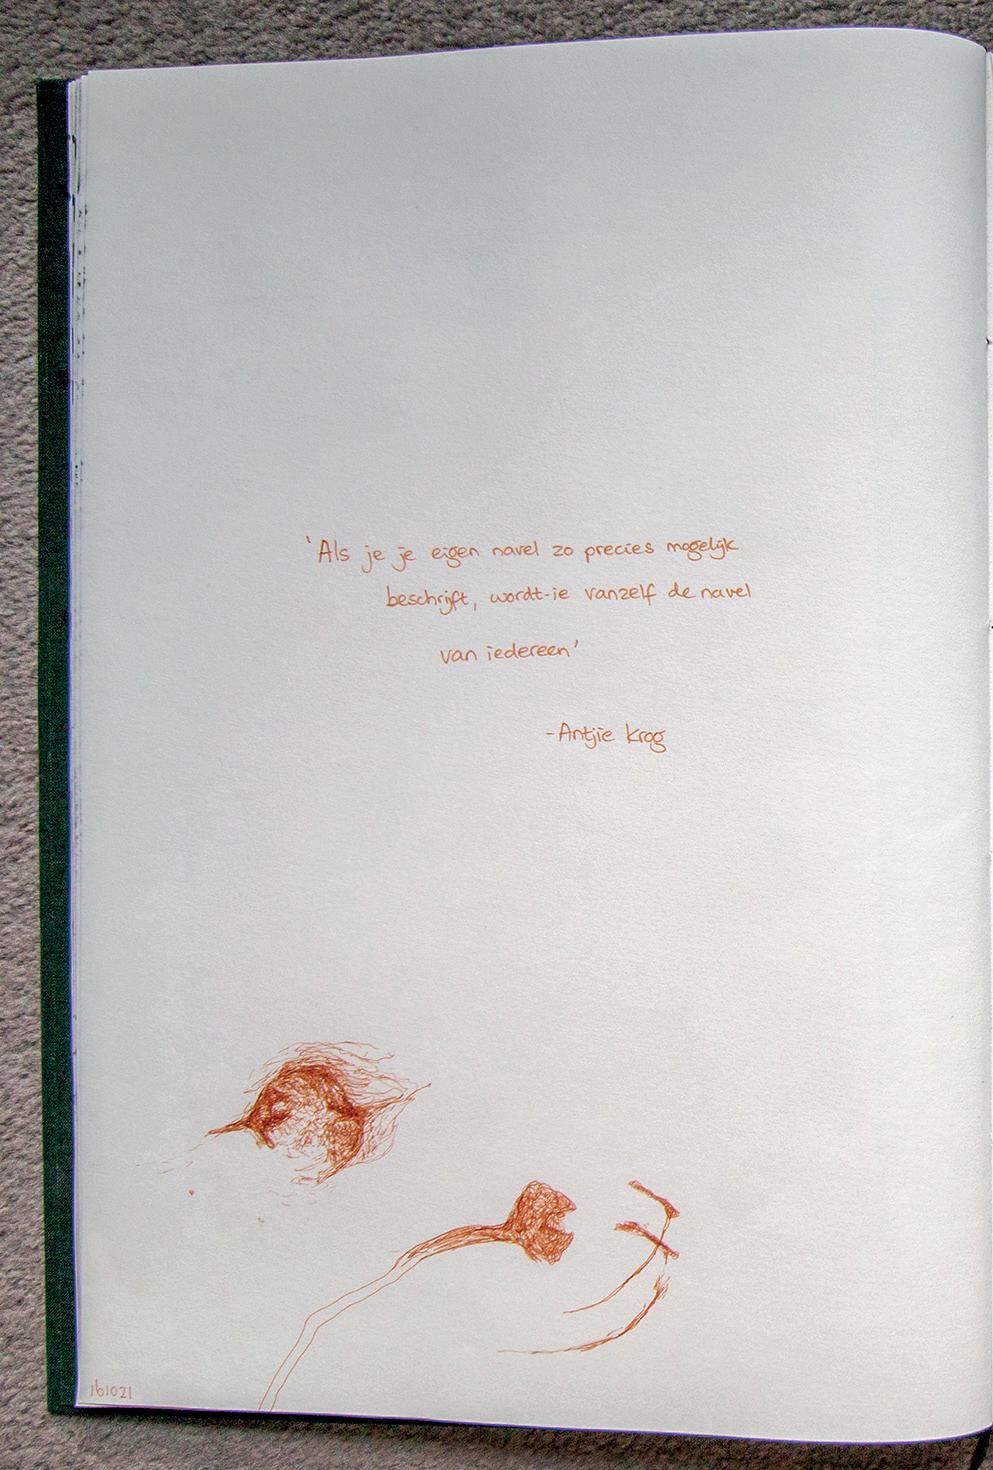 'Als je je eigen navel zo precies mogelijk
beschrijft, wordt-ie vanzelf de navel
van iedereen'
-Antjie Krog
161021